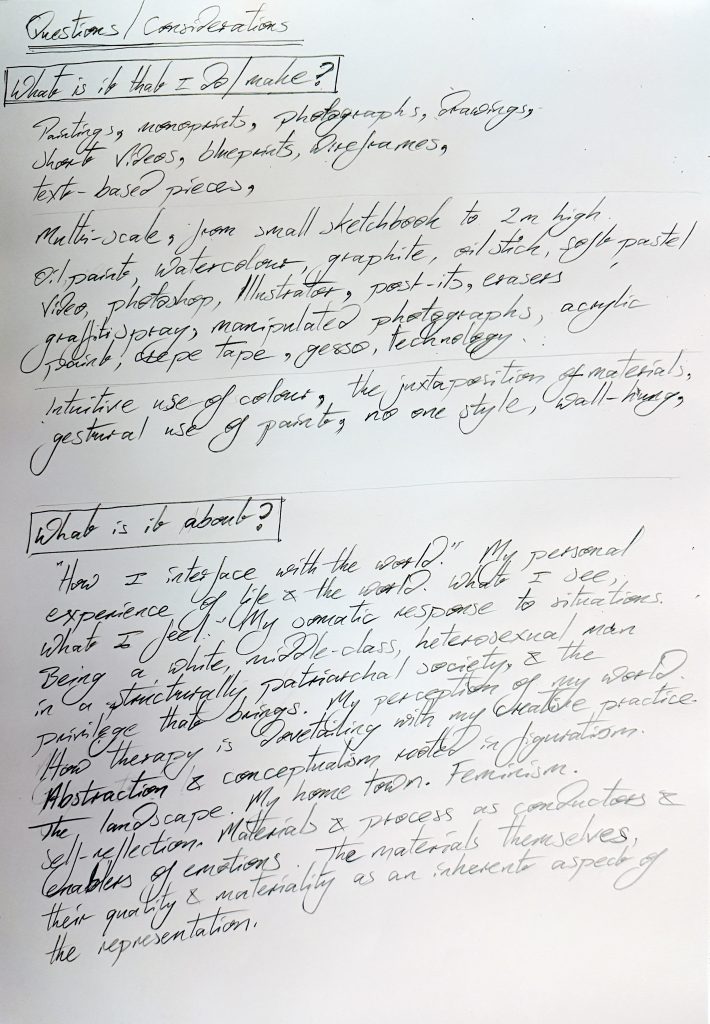 Questions/Considerations
What is it that I do/make?
Paintings, monoprints, photographs, drawings,
short videos, blueprints, wireframes,
text-based pieces,
Multi-scale, from small sketchbook to 2m high.
Oil paint, watercolour, graphite, oil stick, soft pastel,
video, photoshop, Illustrator, post-its, erasers
graffiti spray, manipulated photographs, acrylic
paint, crepe tape, gesso, technology.
Intuitive use of colour, the juxtaposition of materials,
gestural use of paint, no one style, wall-hung,
What is it about?
"How I interface with the world." My personal
experience of life & the world. What I see,
what I feel. My somatic response to situations.
Being a white, middle-class, heterosexual man
in a structurally patriarchal society, & the
privilege that brings. My perception of my world.
How therapy is dovetailing with my creative practice.
Abstraction & conceptualism rooted in figuratism.
The landscape. My home town. Feminism.
Self-reflection. Materials & process as conductors &
enablers of emotions. The materials themselves,
their quality & materiality as an inherent aspect of
the representation.